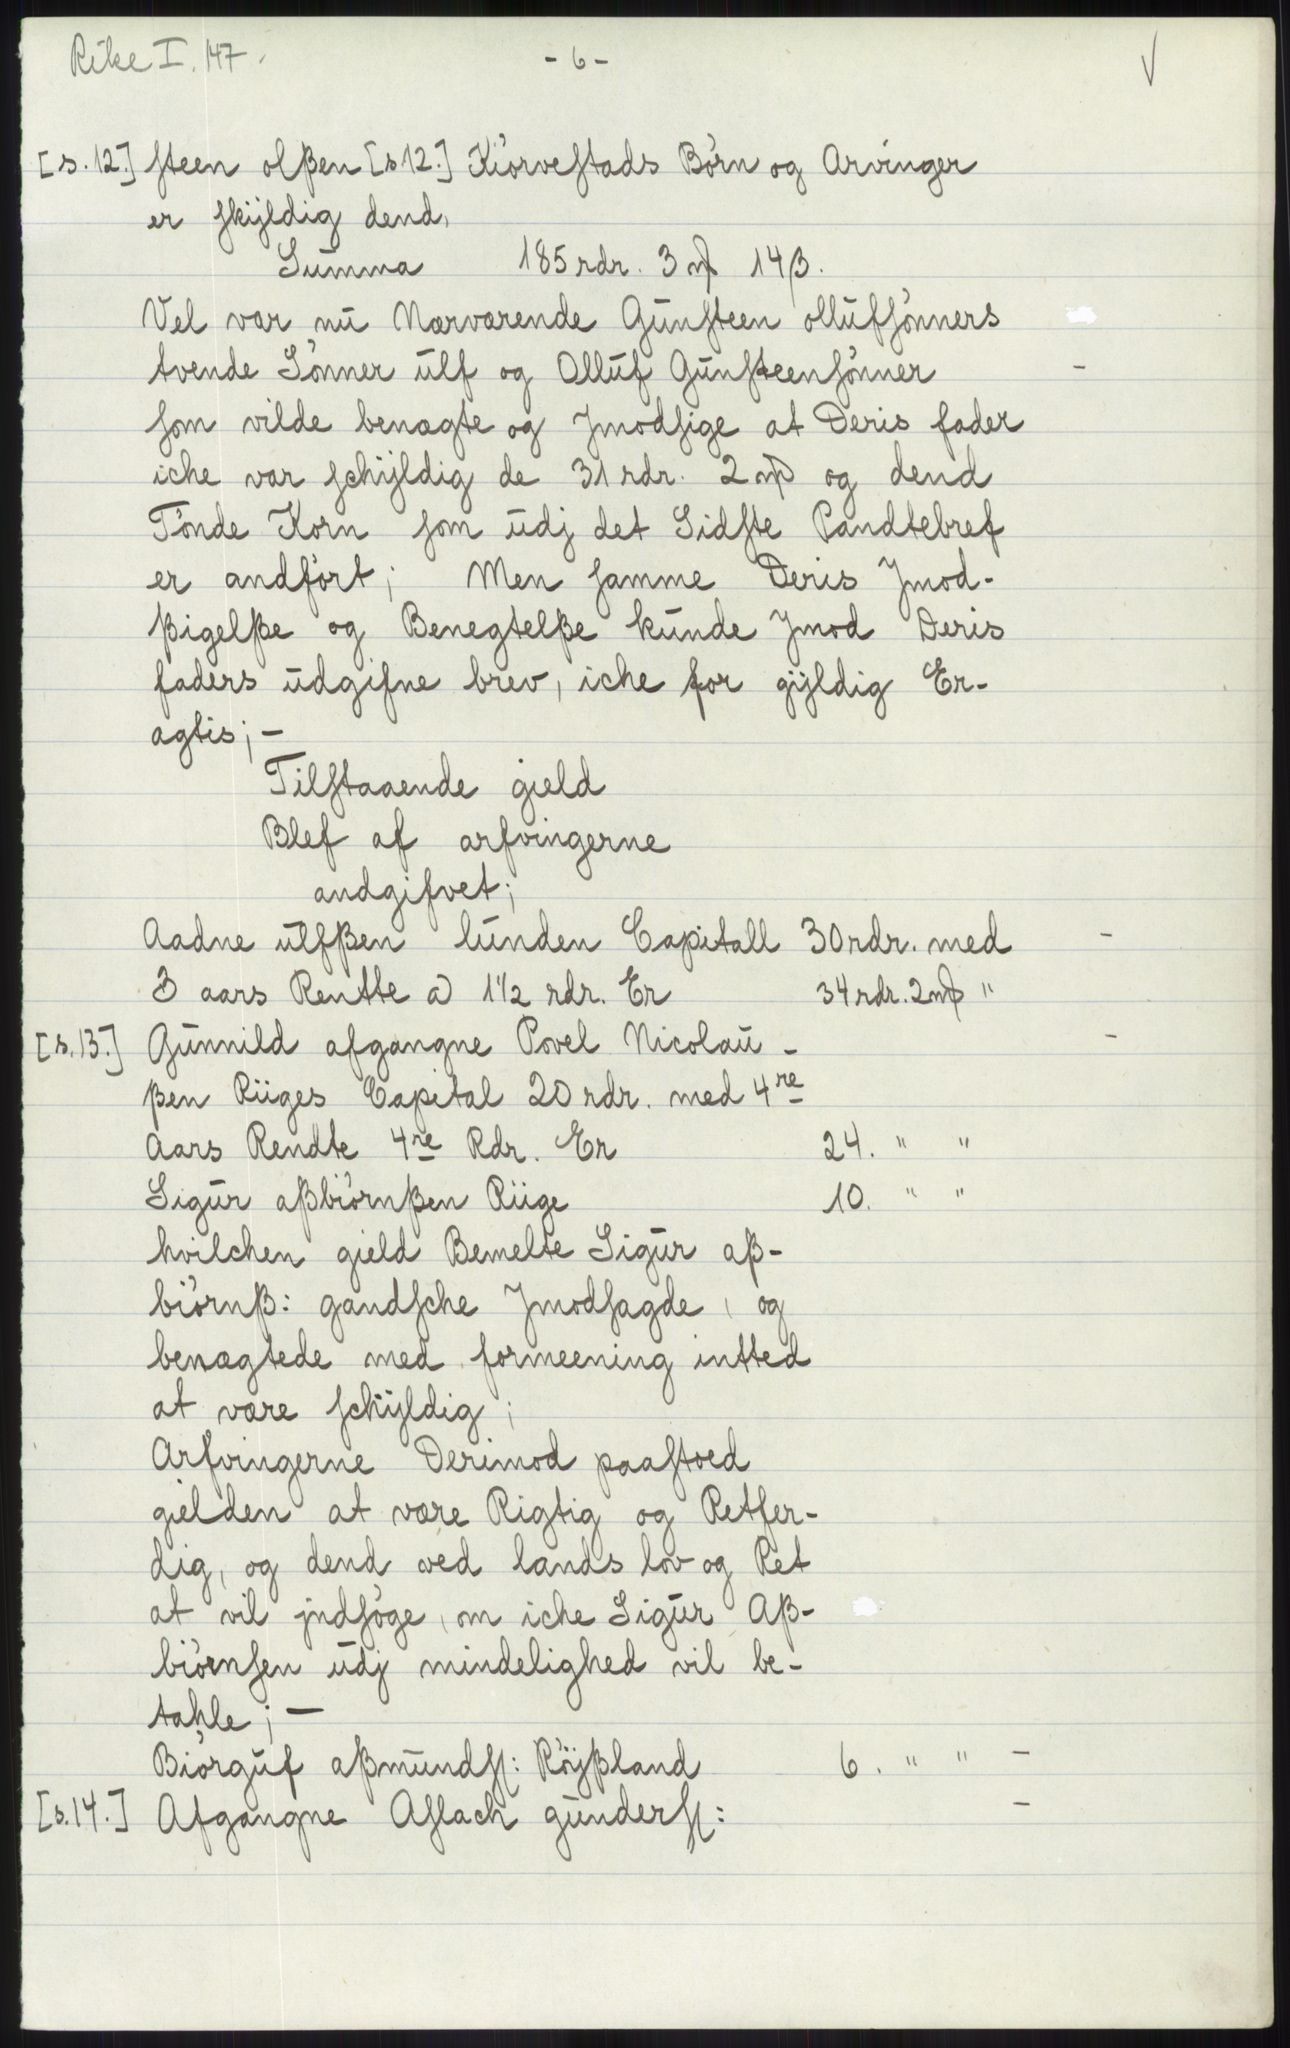 Rike I. 147.
- 6 -
[s. 12.] steen olßen [s 12.] Kiörvestads Börn og Arvinger
er skÿldig dend,
Summa 185 rdr. 3 mƿ 14 β.
Vel var nu Nærværende Gunsteen ollufsönners
tvende Sönner ulf og Olluf Gunsteensönner
som vilde benægte og Jmodsige at Deris fader
iche var schÿldig de 31 rdr. 2 mƿ og dend
Tönde Korn som udj det Sidste Pandtebref
er andfört; Men samme Deris Jmod-
ßigelße og Benegtelße kunde Jmod Deris
faders udgifne brev, iche for gÿldig Er-
agtis; -
Tilstaaende gield
Blef af arfvingerne
andgifvet;
Aadne ulfßen lunden Capitall 30 rdr. med
3 aars Rentte a 1 1/2 rdr. Er 34 rdr. 2 mƿ "
[s. 13.] Gunnild afgangne Povel Nicolau-
ßen Riiges Capital 20 rdr. med 4re
Aars Rendte 4re Rdr. Er 24. " "
Sigur aßbiörnßen Riige 10. " "
hvilchen gield Bemelte Sigur aß-
biörnß: gandsche Jmodsagde, og
benægtede med formeening intted
at være schÿldig;
Arfvingerne Derimod paastoed
gielden at være Rigtig og Retfer-
dig, og dend ved lands lov og Ret
at vil jndsöge, om iche Sigur Aß-
biörnsen udj mindelighed vil be-
tahle; -
Biörguf aßmundss: Röÿßland 6. " "
[s. 14.] Afgangne Aslach gunderss: